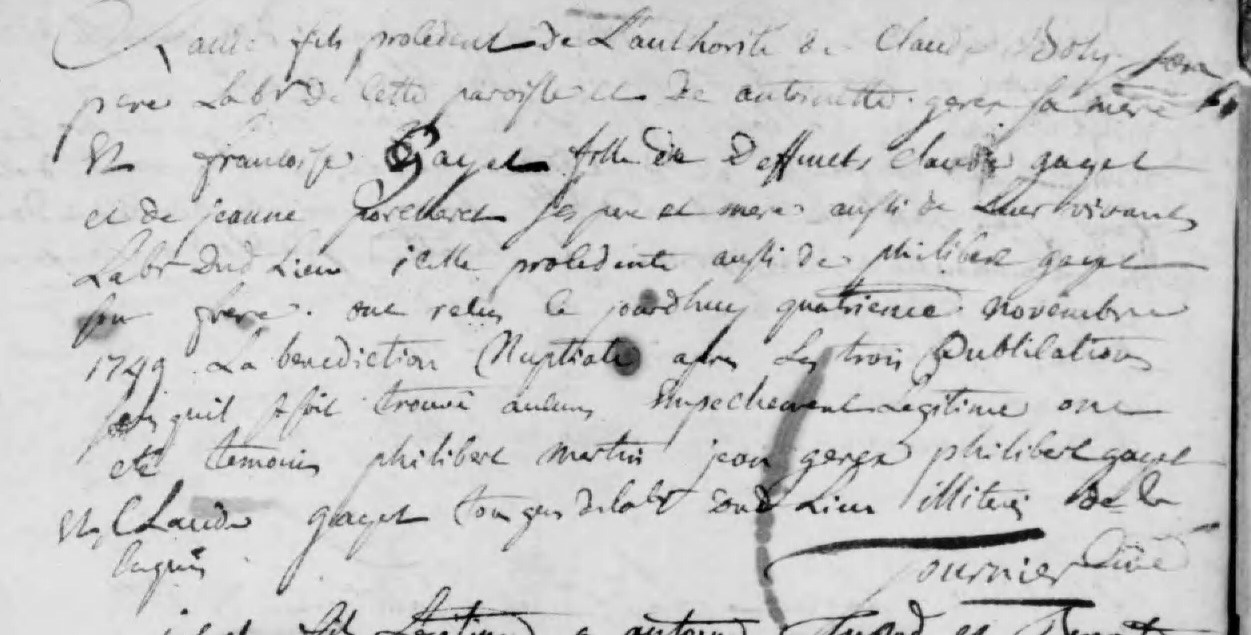 Claude fils procedent de L'authorité de Claude Doly son
pere Labr De Cette paroisse et De antoinette geren sa mere
Et francoise Gayet fille de Deffunts Claude gayet
et de jeanne porcheret ses pere et mere aussi de Leur vivants
Labr Dud Lieu icelle procedente aussi de philibert gayet
son frere ont recus le jourdhuy quatrieme novembre
1749 La benediction Nuptiale apres Les trois Publications
sans quil se soit trouvé aucuns Empechement Legitime ont
eté temoins philibert martin jean geren philibert gayet
Et Claude gayet tous gens de labr dud Lieu illiterés De ce
Enquis
Fournier Curé
fils Legitime a antoine et